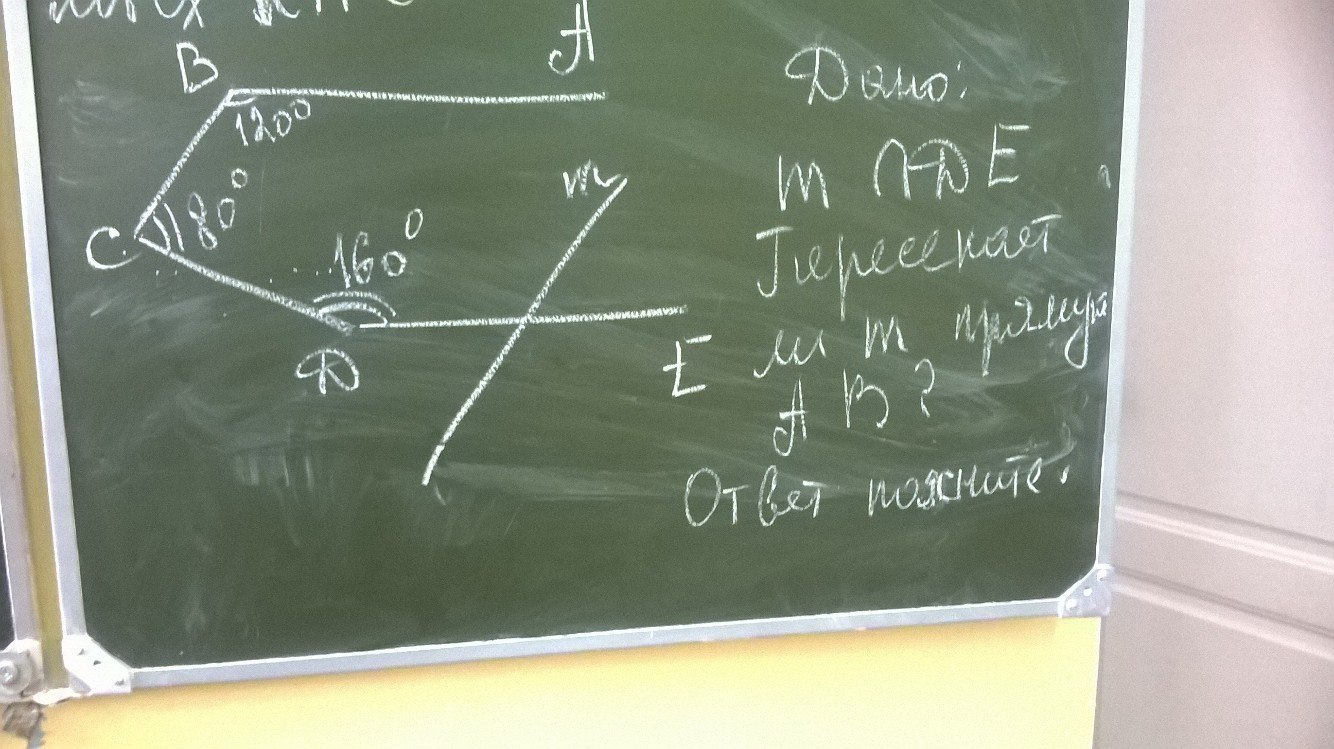 B
A
120°
C
80°
160°
m
D
E
Дано:
m ∩ DE
Пересекает
ли m прямую
AB?
Ответ поясните!